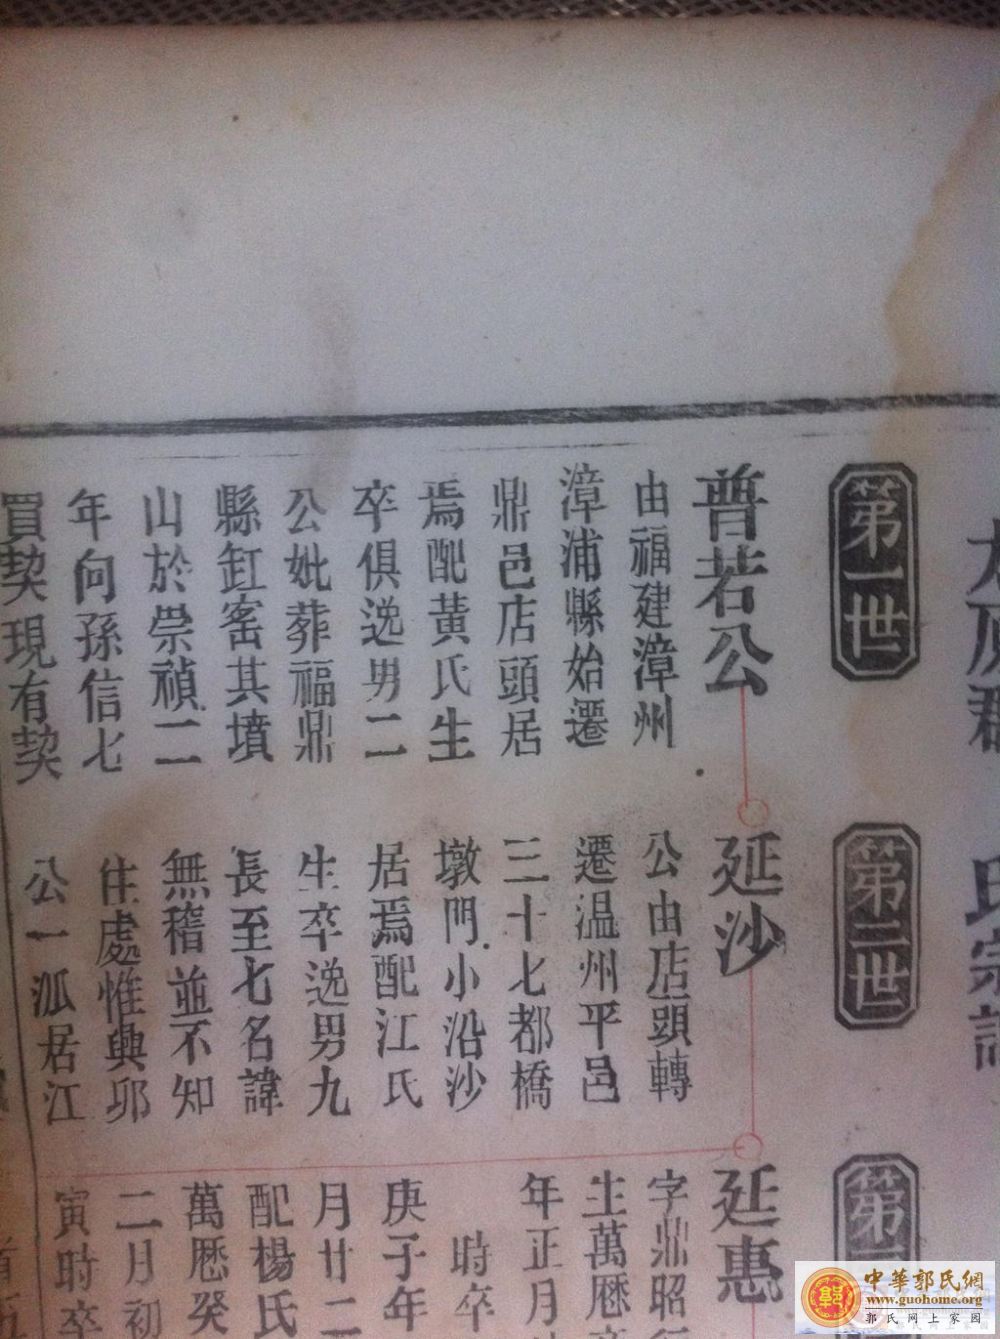 氏宗譜
第一世
普若公
由福建漳州
漳浦縣始遷
鼎邑店頭居
焉配黃氏生
卒俱逸男二
公妣葬福鼎
縣缸窑其墳
山於崇禎二
年向孫信七
買契現有契
第二世
延沙
公由店頭轉
遷温州平邑
三十七都橋
墩門小沿沙
居焉配江氏
生卒逸男九
長至七名諱
無稽並不知
住處惟與邱
公一派居江
第
延惠
字鼎昭
生萬愿
年正月
時卒
庚子年
月廿二
配楊氏
萬愿癸
二月初
寅時卒
中華郭氏網
www.guohome.org
郭氏网上家园